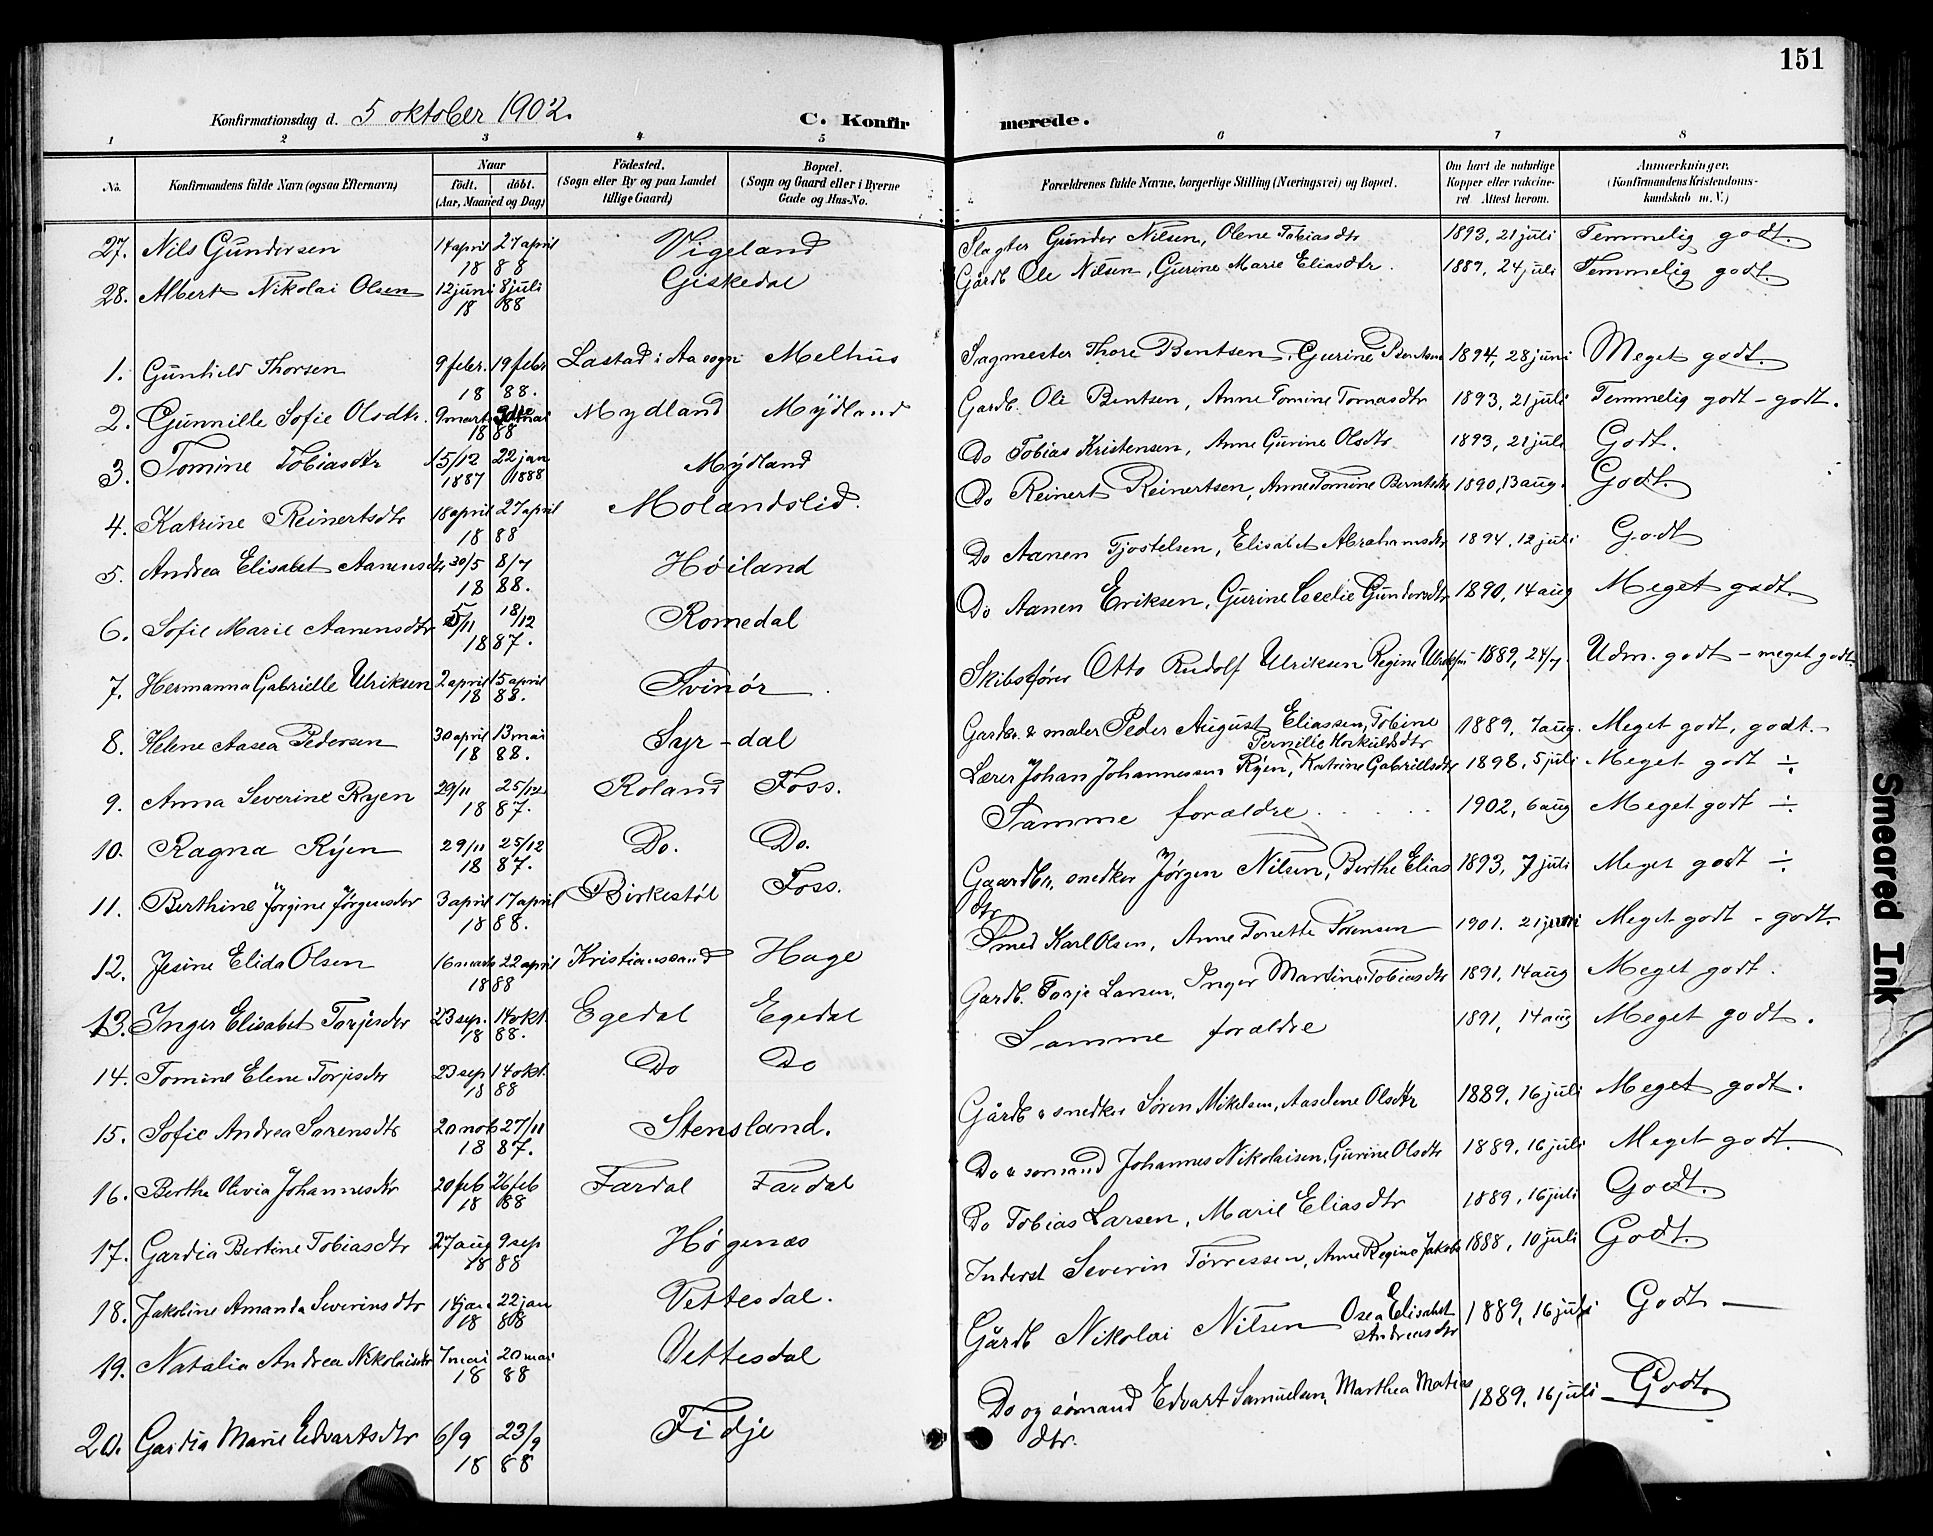 151
Konfirmationsdag d. 5 oktober 1902. C. Konfirmerede.
1 2 3 4 5 6 7 8
No. Konfirmandens fulde Navn (ogsaa Efternavn) Naar födt. döbt. (Aar, Maaned og Dag) Födested. (Sogn eller By og paa Landet tillige Gaard) Bopæl. (Sogn og Gaard eller i Byerne Gade og Hus-No. Forældrenes fulde Navne, borgerlige Stilling (Næringsvei) og Bopæl. Om havt de naturlige Kopper eller vakcineret. Attest herom. Anmærkninger. (Konfirmandens Kristendomskundskab m. V.)
27. Nils Gundersen 14 april 27 april 1888 Vigeland Slagter Gunder Nilsen, Olene Tobiasdtr 1893, 21 juli Temmelig godt.
28. Albert Nikolai Olsen 12 juni 8 juli 1888 Giskedal Gårdb Ole Nilsen, Gurine Marie Eliasdtr. 1889, 24 juli Temmelig godt.
1. Gunhild Thorsen 9 febr. 19 febr 1888. Lastad i Aa sogn Melhus Sagmester Thore Bentsen, Gurine Berntsen 1894, 28 juni Meget godt.
2. Gunnille Sofie Olsdtr. 9 mart mai 1888 Mydland Mydland Gardb. Ole Bentsen, Anne Tomine Tomasdtr 1893, 21 juli Temmelig godt - godt.
3. Tomine Tobiasdtr 15/12 1887 22 jan 1888 Mydland Do Tobias Kristensen, Anne Gurine Olsdtr 1893, 21 juli Godt.
4. Katrine Reinertsdtr 18 april 27 april 1888 Molandslid. Do Reinert Reinertsen, Anne Tomine Berntsdtr 1890, 13 aug. Godt.
5. Andrea Elisabet Aanensdtr 30/5 8/7 1888. Høiland Do Aanen Tjostelsen, Elisabet Abrahamsdtr 1894, 12 juli Godt
6. Sofie Marie Aanensdtr 5/11 18/12 1887. Romedal Do Aanen Eriksen, Gurine Cecelie Gundersdtr 1890, 14 aug Meget godt.
7. Hermanna Gabrielle Ulriksen 2 april 15 april 1888. Svinør. Skibsfører Otto Rudolf Ulriksen Regine 1889, 24/7. Udm. godt - meget godt
8. Helene Aasea Pedersen 30 april 13 mai 1888. Syr-dal Gardbr. & maler Peder August Eliassen, Tobine Pernille Horkuldsdtr 1889, 7 aug. Meget godt, godt.
9. Anna Severine Ryen 29/11 25/12 1887. Roland Foss. Lærer Johan Johannessen Ryen, Katrine Gabrielsdtr 1898, 5 juli Meget godt ÷
10. Ragna Ryen 29/11 25/12 1887. Do. Do. Samme foraldre 1902, 6 aug Meget godt ÷.
11. Berthine Jørgine Jørgensdtr 3 april 17 april 1888. Birkestøl Foss. Gaardbr. snedker Jørgen Nilsen, Berthe Elias dtr 1893, 7 juli Meget godt ÷
12. Jesine Elida Olsen 16 marts 22 april 1888 Kristianssand Hage Smed Karl Olsen, Anne Tonette Sørensen 1901. 21 juni Meget godt - godt.
13. Inger Elisabet Torjesdtr 23 sep. 14 okt. 1888. Egedal Egedal Gardb. Torje Larsen, Inger Martine Tobiasdtr 1891, 14 aug Meget godt.
14. Tomine Elene Torjesdtr 23 sep 14 okt. 1888 Do Do Samme foraldre 1891, 14 aug Meget godt.
15. Sofie Andrea Sørensdtr 20 nob 27/11 1887. Stensland. Gårdb & snedker Søren Mikelsen, Aaselene Olsdtr 1889, 16 juli Meget godt.
16. Berthe Olivia Johannesdtr 20 feb 26 feb 1888 Fardal Fardal Do & sømand Johannes Nikolaisen, Gurine Olsdtr 1889, 16 juli Meget godt.
17. Gardia Bertine Tobiasdtr 27 aug 9 sep 1888 Høgenæs Do Tobias Larsen, Marie Eliasdtr 1889, 16 juli Godt.
18. Jakobine Amanda Severinsdtr 14 jan. 22 jan 1888 Vettesdal. Inderst Severin Tørressen, Anne Regine Jakobs 1888, 10 juli Godt.
19. Natalia Andrea Nikolaisdtr 7 mai 20 mai 1888 Vettesdal Gårdb Nikolai Nilsen Osea Elisabet Andreasdtr 1889, 16 juli Godt
20. Gardia Marie Edvartsdtr 6/9 23/9 1888 Fidje Do og sømand Edvart Samuelsen, Marthea Matias dtr. 1889, 16 juli Godt.
Smeared Ink